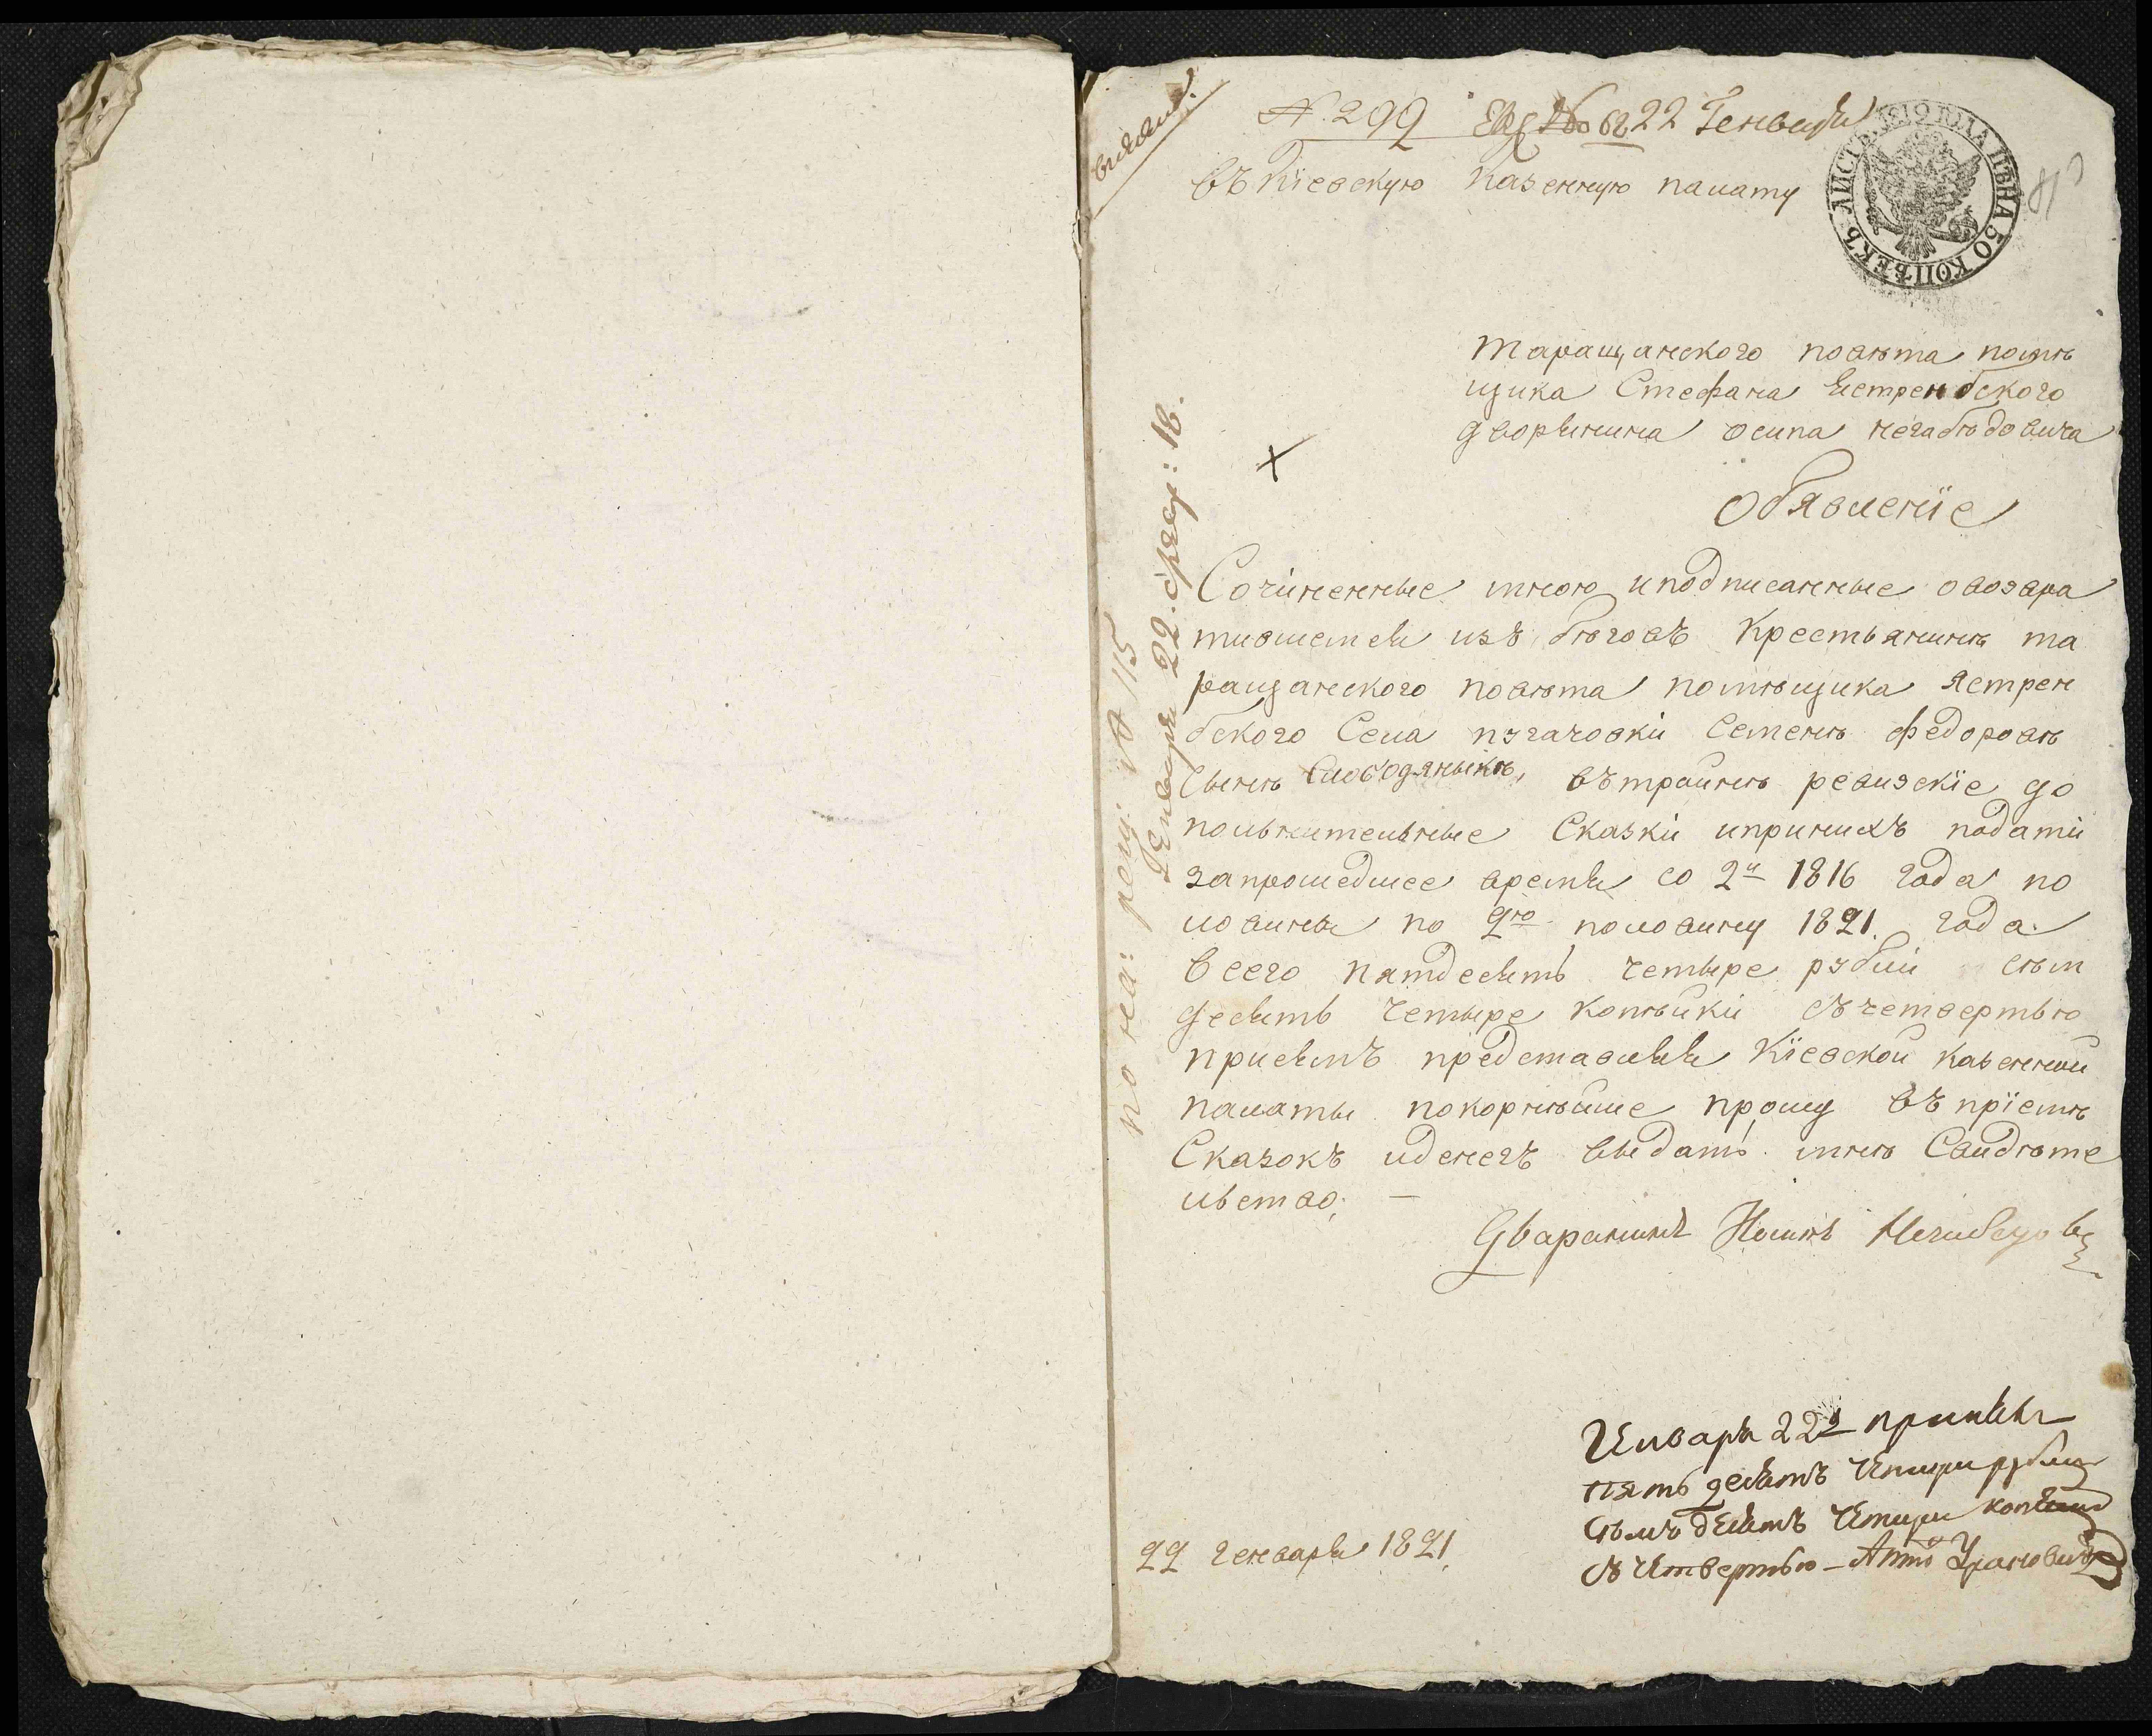 выдано.
№. 299 62 22 Генваря
въ Кіевскую Казенную палату
ЛИСТЪ. 1819 ГОДА ЦѢНА 50 КОПѢЕКЪ
Таращанского повѣта помѣ
щика Стефана Ястренбского
дворянина осипа негабѣдовича
Обявленіе
Сочіненные мною иподписанные овозвра
тившемся изъ бѣговъ Крестьянинѣ та
ращанского повѣта помѣщика Ястрен
бского Села пугачовкі Семенѣ Федоровѣ
Сынѣ Слободяныкѣ, въ трайнѣ ревизскіе до
полнительные Сказкі ипринихъ податі
запрошедшее время со 2й 1816 года по
ловины по 2ю половину 1821. года.
Всего пятдесятъ четыре рублі сѣм
десятъ четыре копѣйкі съчетвертью
присемъ представляя Кіевской казенной
палаты покорнѣйше прошу въ пріемѣ
Сказокъ иденегъ выдать мнѣ Свидѣте
льство. —
Дваранинъ Иосифъ
22 генваря 1821.
Генваря 22 принялъ
пять десятъ Четыри рубли
сѣмъ десятъ Четыри копейки
съ Четвертью —
по рещ: № 115
Генваря 22. 18.